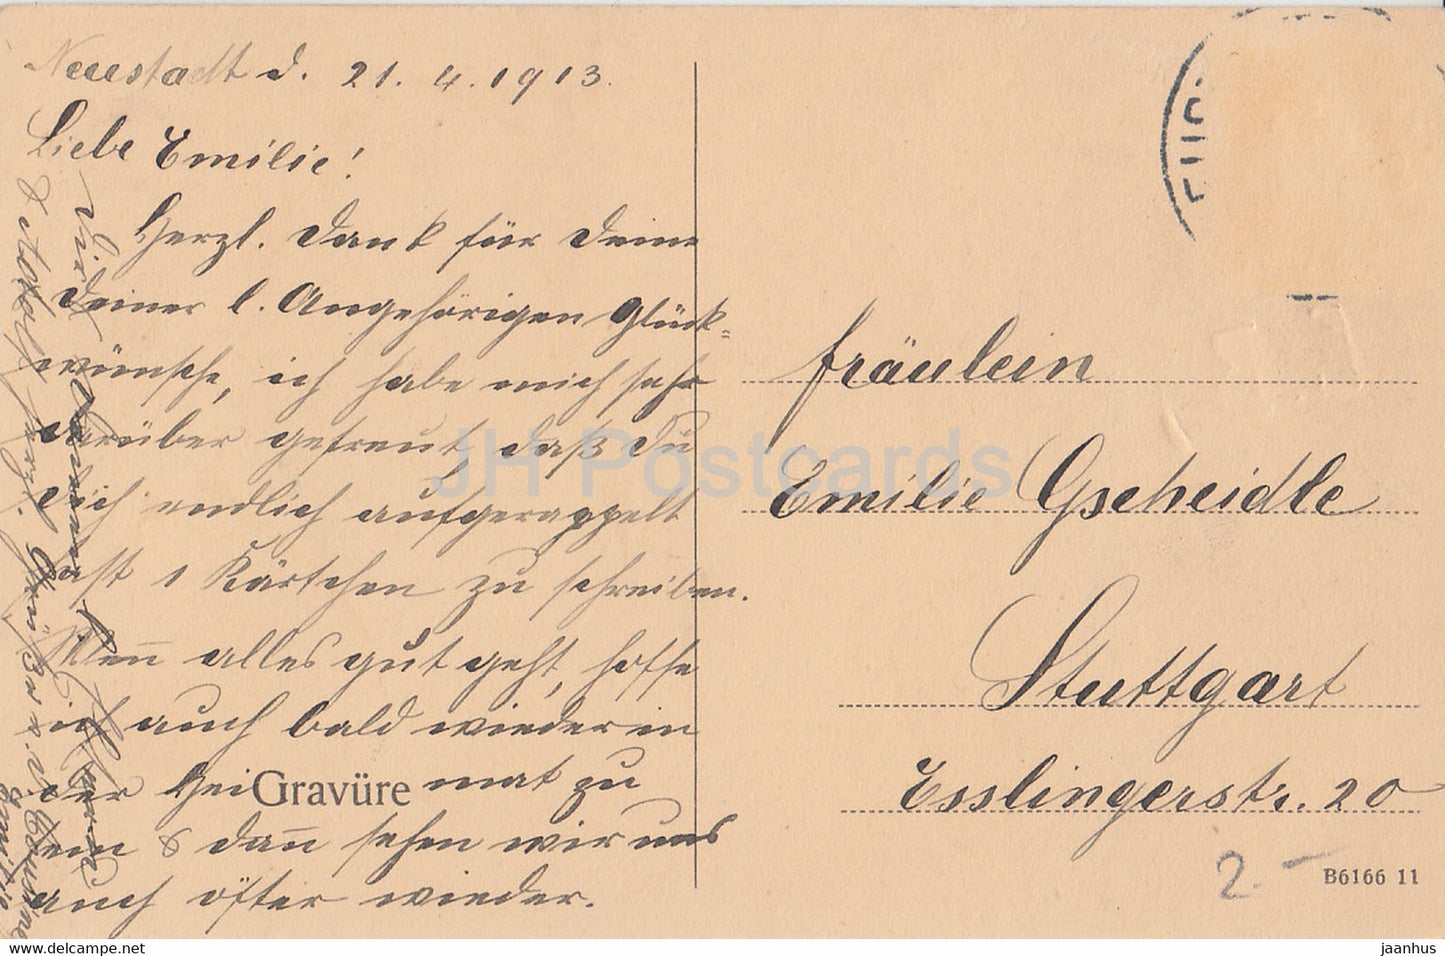 Neustadt d. 21. 4. 1913.
Liebe Emilie!
Herzl. Dank für Deine
Deiner l. Angehörigen Glück-
wünsche, ich habe mich sehr
darüber gefreut, daß Du
Dich endlich aufgerappelt
hast 1 Kärtchen zu schreiben.
Wen̅ alles gut geht, hoffe
ich auch bald wieder in
der Hei mat zu
sein & dan̅ sehen wir uns
auch öfter wieder.
herzl. Grüße v.
Gravüre
Fräulein
Emilie Gscheidle
Stuttgart
Esslingerstr. 20
2 -
B6166 11
JH Postcards
www.delcampe.net
jaanhus